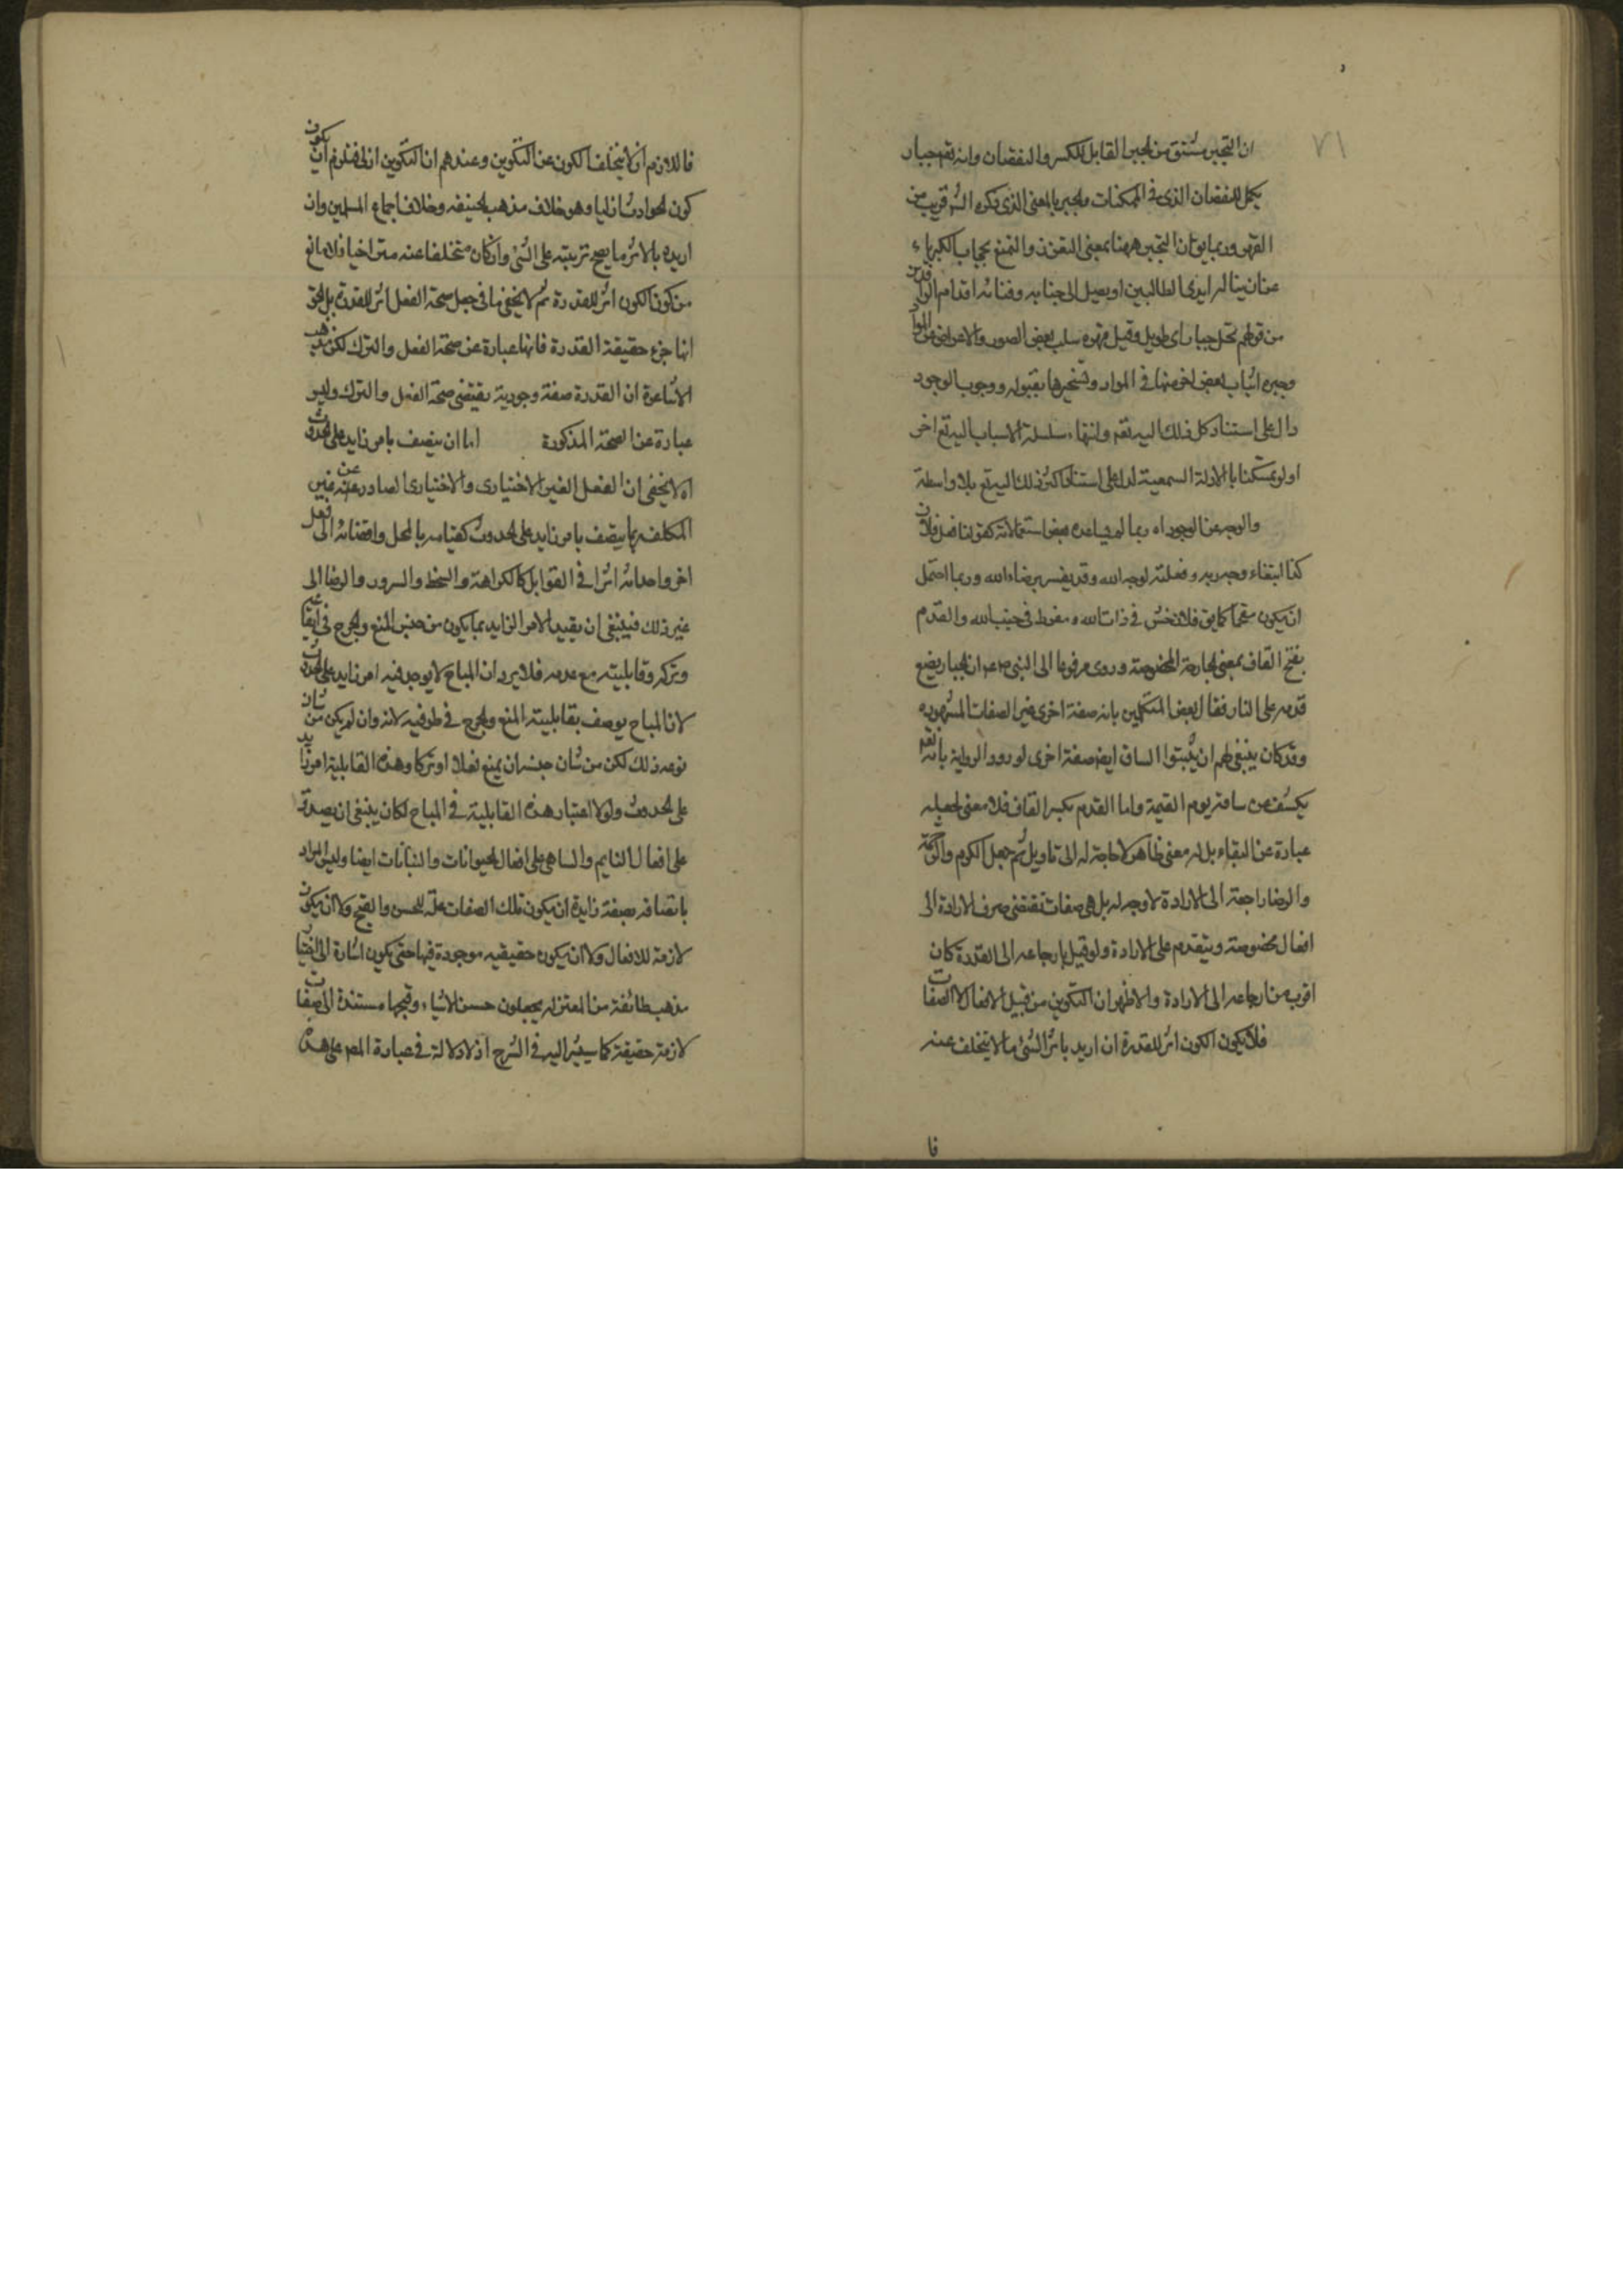 ٧١
ان التجبر مشتق من الجبر القابل للكسر والنقصان وانه تعم جبار
يكمل النقصان الذى فى الممكنات والجبر بالمعنى الذى ذكره الش قريب من
القهر وربما يوٯ ان التجبر ههنا بمعنى التعزز والتمنع بحجاب الكبرياء
عن ان يناله ايدى الطالبين او يصل الى جنابه وفنائه اقدام الواردين
من قولهم نخل جبار اى طويل وقيل قهره سلب بعض الصور والاعراض عن المواد
وجبره اثبات بعض اخر منها فى المواد وتسخيرها بقبوله ووجوب الوجود
دال على استناد كل ذلك اليه تعم وانتهاء سلسلة الاسباب اليه تع اخر
اولو تمسكنا بالادلة السمعية لدل على استناد اكثر ذلك اليه تع بلا واسطة
والوجه عن الوجود اه ربما لم يساعده بعض استعمالاته كقولنا فعل فلان
كذا ابتغاء وجه ربه وفعلته لوجه الله وقد يفسر برضاء الله وربما احتمل
ان يكون مقحما كما يق فلان خشن فى ذات الله ومفرط فى جنب الله والقدم
بفتح القاف بمعنى الجارحة المخصوصة وروى مرفوعا الى النبى صم ان الجبار يضع
قدمه على النار فقال بعض المتكلمين بانه صفة اخرى غير الصفات المشهورة
وقد كان ينبغى لهم ان يثبتوا الساق ايضا صفة اخرى لورود الرواية بانه تعم
يكشف عن ساقه يوم القيمة واما القدم بكسر القاف فلا معنى لجعله
عبارة عن البقاء بل له معنى ظاهر لا حاجة له الى تاويل ثم جعل الكرم والرحمة
والرضا راجعة الى الارادة لا وجه له بل هى صفات تقتضى صرف الارادة الى
افعال مخصوصة ويتقدم على الارادة ولو قيل بارجاعه الى القدرة كان
اقرب من ارجاعه الى الارادة والاظهر ان التكوين من قبيل الافعال لا الصفات
فلا يكون الكون اثر للقدرة ان اريد باثر الشئ ما لا يتخلف عنه
فا
فاللازم ان لا يتخلف الكون عن التكوين وعندهم ان التكوين ازلى فيلزم ان يكون
كون الحوادث ازليا وهو خلاف مذهب الحنيفه وخلاف اجماع المسلمين وان
اريد بالاثر ما يصح ترتبته على الشئ وان كان متخلفا عنه متراخيا فلا مانع
من كون الكون اثر للقدرة ثم لا يخفى ما فى جعل صحة الفعل اثر للقدرة بل الحق
انها جزء حقيقة القدرة فانها عبارة عن صحة الفعل والترك لكن مذهب
الاشاعرة ان القدرة صفة وجودية يقتضى صحة الفعل والترك وليس
عبارة عن الصحة المذكورة اما ان يتصف بامر زايد على الحدوث
اه لا يخفى ان الفعل الغير الاختيارى والاختيارى الصادر عن غير
المكلف ربما يتصف بامر زايد على الحدوث كقيامه بالمحل وافضائه الى فعل
اخر واحداثه اثرا فى القوابل كالكراهة والسخط والسرور والرضا الى
غير ذلك فينبغى ان يقيد الامر الزايد بما يكون من جنس المنع والحرج فى ايقاعه
وتركه وقابليته مع عدمه فلا يرد ان المباح لا يوجد فيه امر زايد على الحدوث
لان المباح يوصف بقابليته المنع والحرج فى طرفيه لانه وان لم يكن من شان
نوعه ذلك لكن من شان جنسه ان يمنع فعلا او تركا وهذه القابلية امر زايد
على الحدوث ولولا اعتبار هذه القابلية فى المباح لكان ينبغى ان يصدق
على افعال النايم والساهى على افعال الحيوانات والنباتات ايضا وليس المراد
باتصافه بصفة زايدة ان يكون تلك الصفات علة للحسن والقبح ولا ان يكون
لازمة للافعال ولا ان يكون حقيقيه موجودة فيها حتى يكون اشارة الى اختيار
مذهب طائفة من المعتزله يجعلون حسن الاشياء وقبحها مستندة الى صفات
لازمة حقيقة كما سيشير اليه فى الشرح اذ لا دلالة فى عبارة المص على هذه